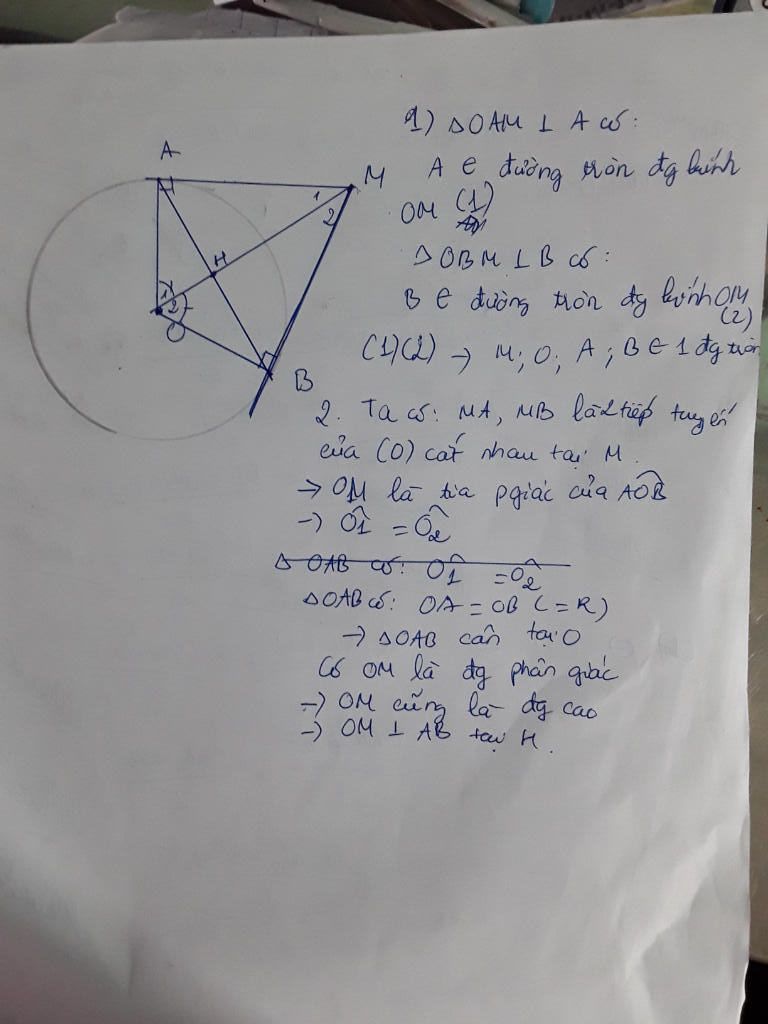 1) △OAM ⊥ A có:
A ∈ đường tròn đg kính
OM (1)
△OBM ⊥ B có:
B ∈ đường tròn đg kính OM
(2)
(1)(2) → M; O; A; B ∈ 1 đg tròn
2. Ta có: MA, MB là 2 tiếp tuyến
của (O) cắt nhau tại M.
→ OM là tia pgiác của AÔB
→ Ô1 = Ô2
△ OAB có: Ô1 = Ô2
△OAB có: OA = OB (= R)
→ △OAB cân tại O
Có OM là đg phân giác
→ OM cũng là đg cao
→ OM ⊥ AB tại H.
A
M
1
2
H
1
2
O
B